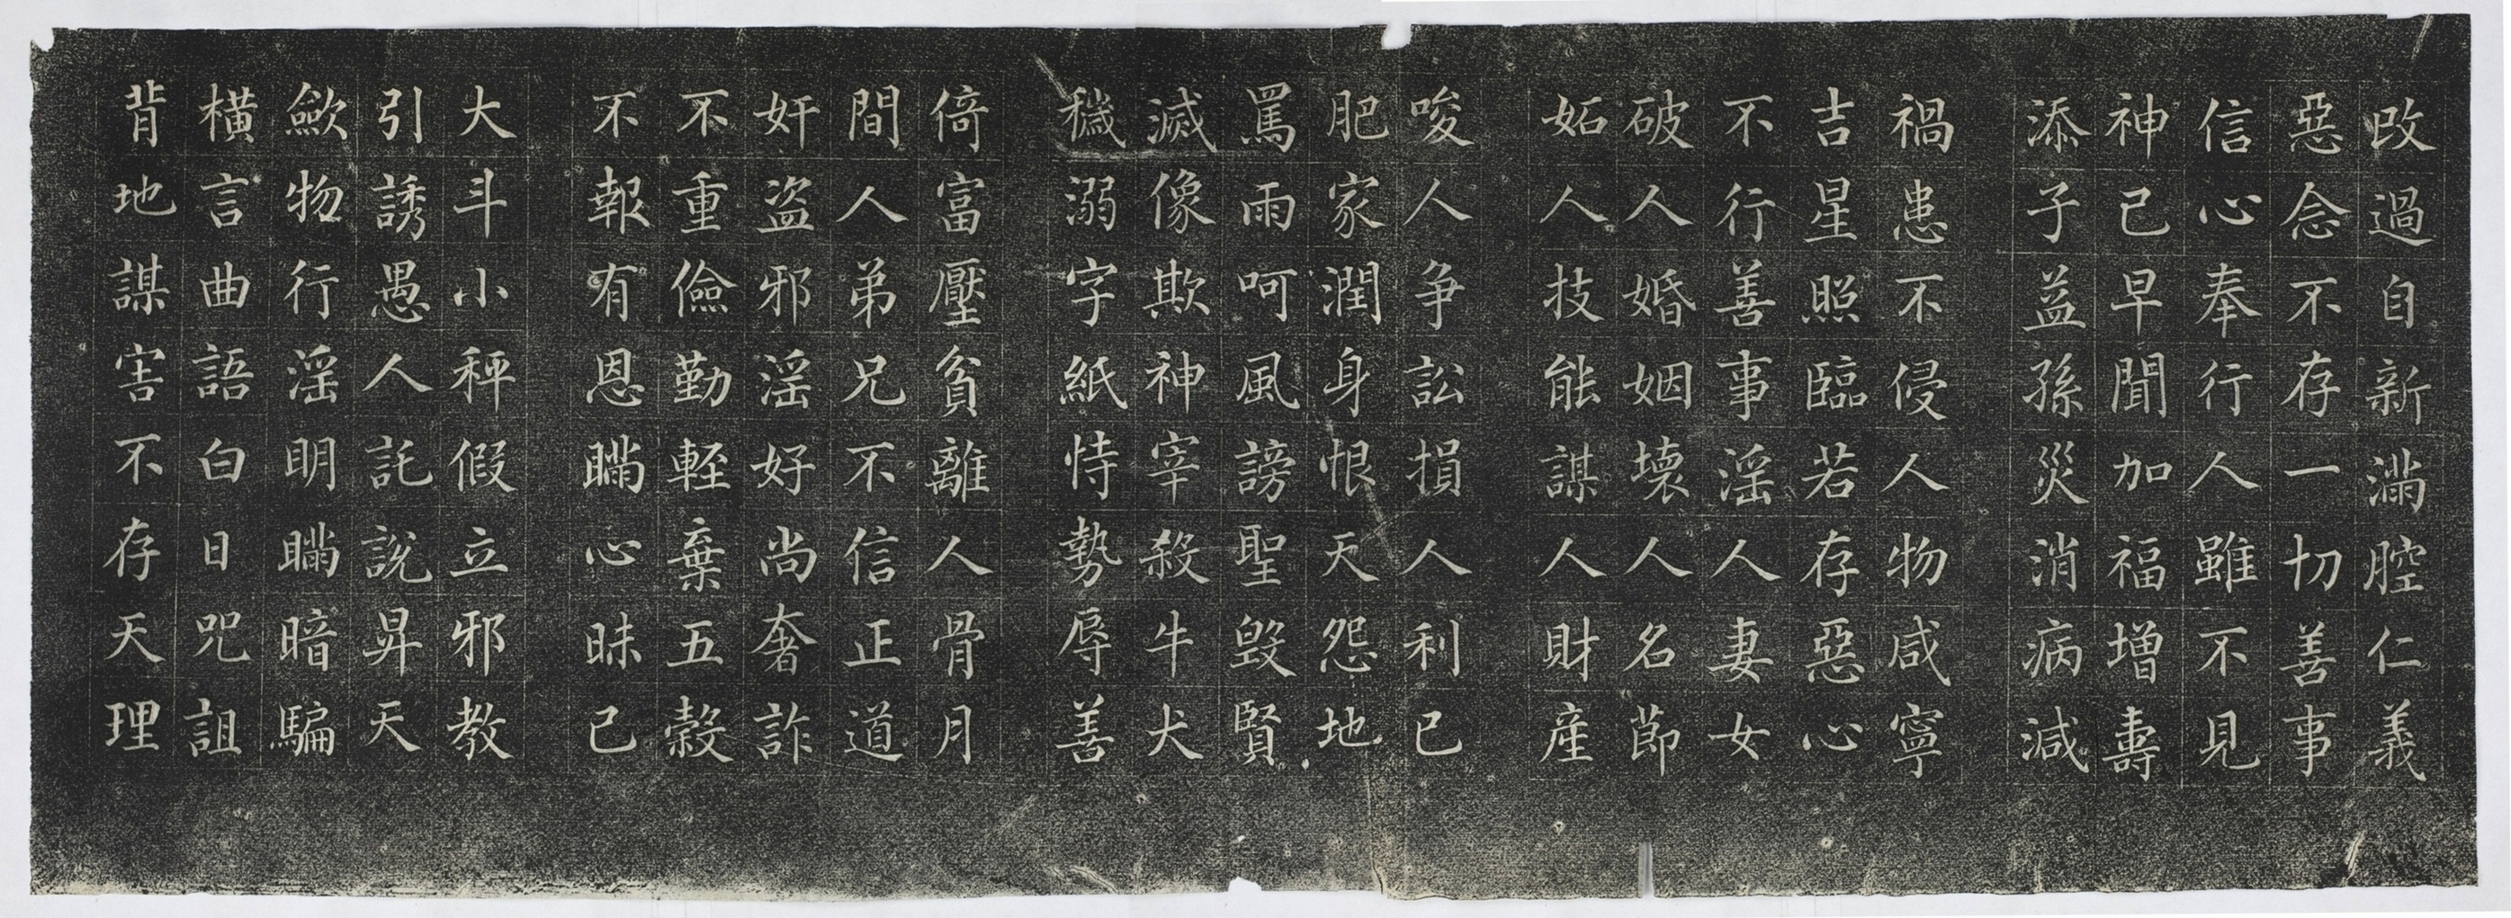 改過自新滿腔仁義
惡念不存一切善事
信心奉行人雖不見
神已早聞加福增壽
添子益孫災消病減
禍患不侵人物咸寧
吉星照臨若存惡心
不行善事淫人妻女
破人婚姻壞人名節
妬人技能謀人財産
唆人争訟損人利已
肥家潤身恨天怨地
罵雨呵風謗聖毀賢
滅像欺神宰殺牛犬
穢溺字紙恃勢辱善
倚富壓貧離人骨月
間人弟兄不信正道
奸盗邪淫好尚奢詐
不重儉勤輕棄五穀
不報有恩瞞心昧已
大斗小秤假立邪教
引誘愚人託說昇天
歛物行淫明瞞暗騙
橫言曲語白日咒詛
背地謀害不存天理